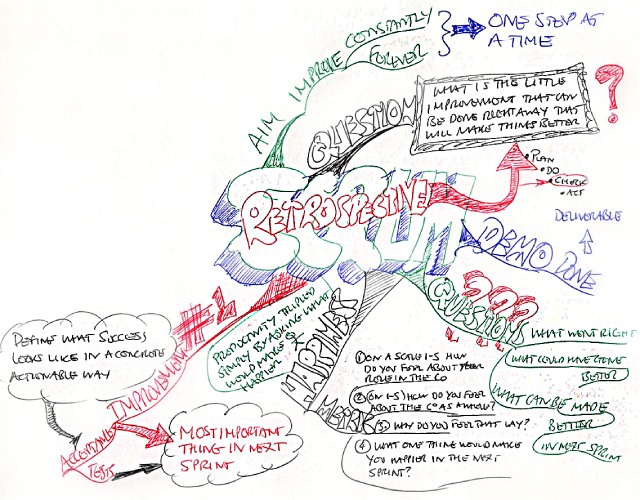 AIM IMPROVE CONSTANTLY
FOREVER
ONE STEP AT
A TIME
QUESTION
WHAT IS THE LITTLE
IMPROVEMENT THAT CAN
BE DONE RIGHT AWAY THAT
WILL MAKE THINGS BETTER
?
• PLAN
• DO
• CHECK
• ACT
SCRUM
RETROSPECTIVE
DELIVERABLE
DEMO DONE
???
QUESTIONS
WHAT WENT RIGHT
WHAT COULD HAVE GONE
BETTER
WHAT CAN BE MADE
BETTER
IN NEXT SPRINT
PRODUCTIVITY TRIPLED
SIMPLY BY ASKING WHAT
WOULD MAKE
HAPPIER
HAPPINESS
METRIC
① ON A SCALE 1-5 HOW
DO YOU FEEL ABOUT YOUR
ROLE IN THE CO
② (ON 1-5) HOW DO YOU FEEL
ABOUT THE CO AS A WHOLE?
③ WHY DO YOU FEEL THAT WAY?
④ WHAT ONE THING WOULD MAKE
YOU HAPPIER IN THE NEXT
SPRINT?
#1
IMPROVEMENT
DEFINE WHAT SUCCESS
LOOKS LIKE IN A CONCRETE
ACTIONABLE WAY
ACCEPTANCE
TESTS
MOST IMPORTANT
THING IN NEXT
SPRINT